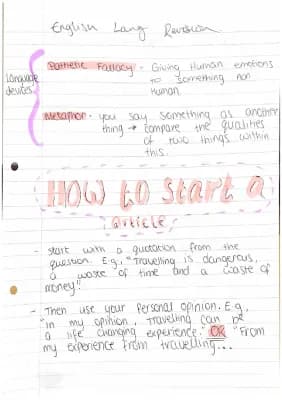 English Lang Revision
Language
devices.
Pathetic Fallacy - Giving Human emotions
to something non
Human.
Metaphor - you say something as another
thing → compare the qualities
of two things within
this.
How to start a
article
- start with a quotation from the
question. E.g, "Travelling is dangerous,
a waste of time and a waste of
money!"
- Then use your Personal opinion. E.g,
"in my opinion, travelling can be
a life changing experience." OR "From
my experience from travelling...